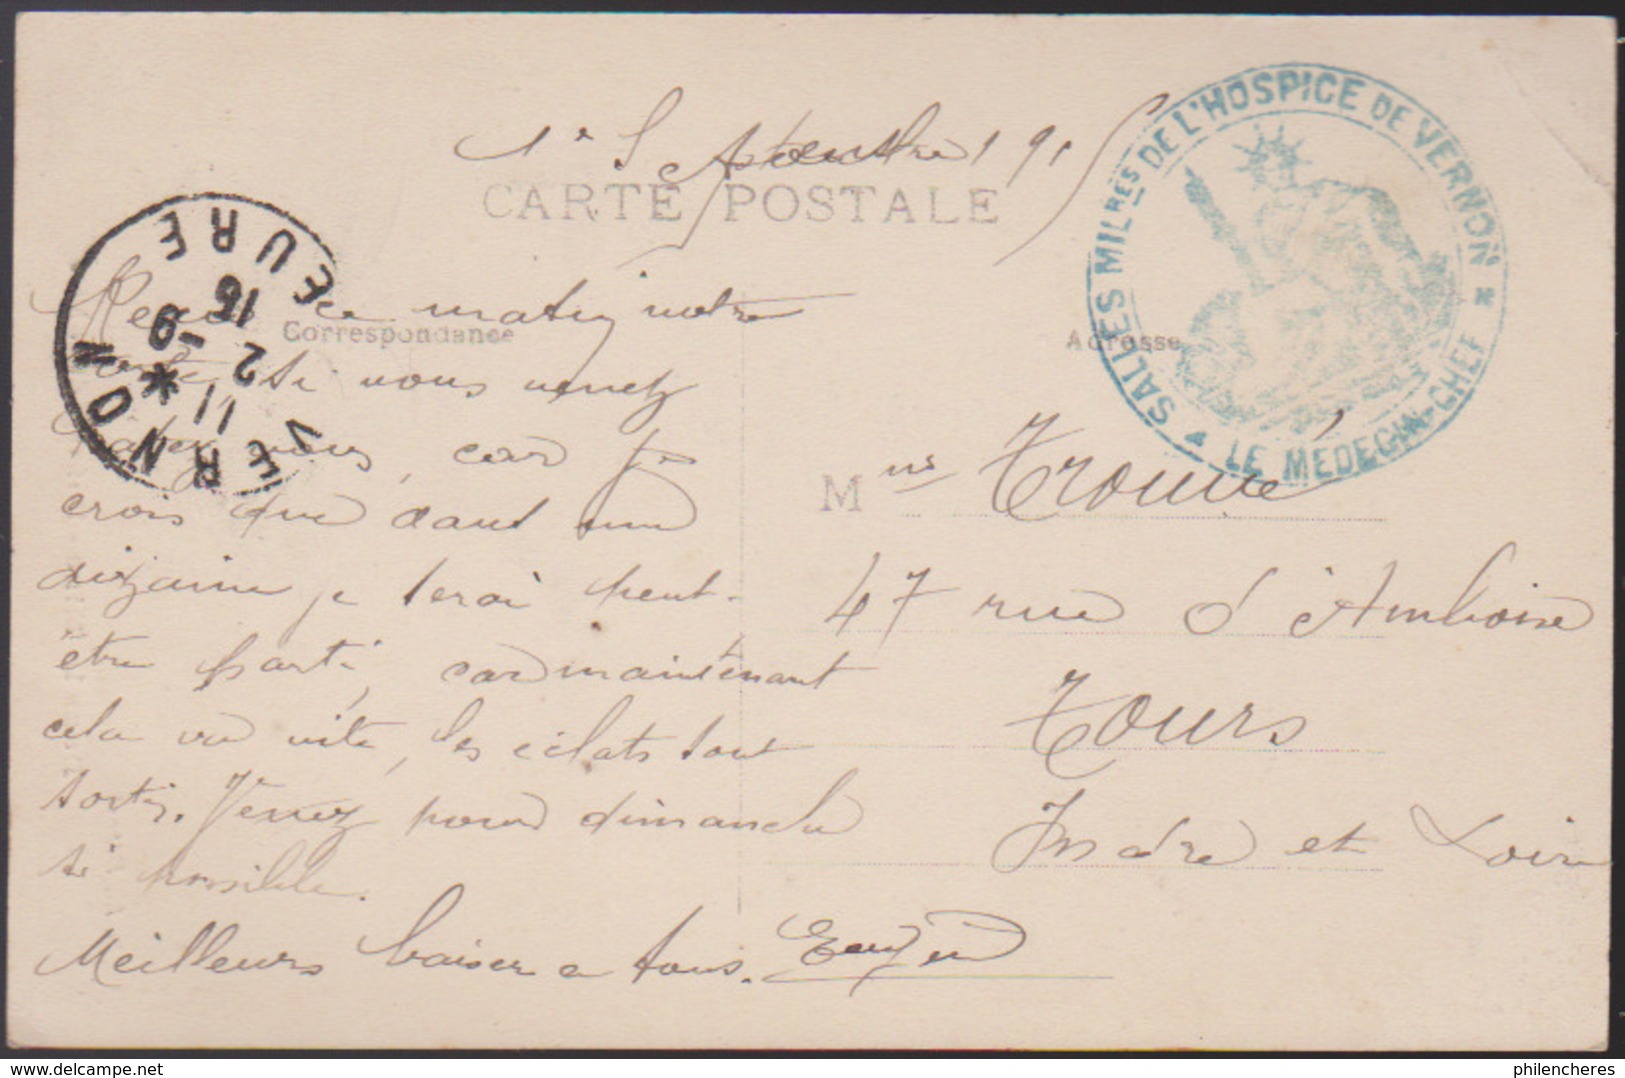 1er Septembre 1915
CARTE POSTALE
SALLES MILRES DE L'HOSPICE DE VERNON
LE MEDECIN-CHEF
VERNON
EURE
11 *
2 -9
15
Correspondance
Adresse
Reçu ce matin votre
carte si vous venez
hatez vous, car je
crois que dant une
dizaine je serai peut-
être parti, car maintenant
cela va vite, les éclats sont
sortis. Venez pour dimanche
si possible.
Meilleurs baiser a tous.
Mme Trouvé
47 rue d'Amboise
Tours
Indre et Loire
delcampe.net
philencheres